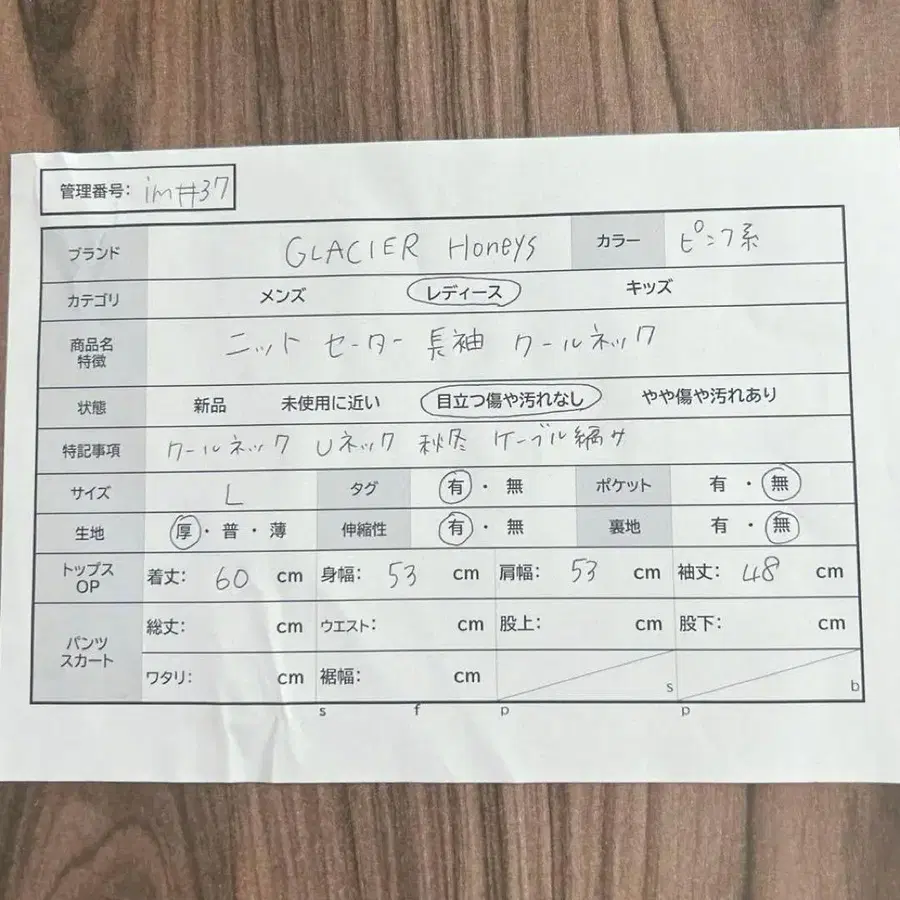 管理番号: im#37
ブランド GLACIER Honeys カラー ピンク系
カテゴリ メンズ レディース キッズ
商品名 特徴 ニット セーター 長袖 クールネック
状態 新品 未使用に近い 目立つ傷や汚れなし やや傷や汚れあり
特記事項 クールネック Uネック 秋冬 ケーブル編み
サイズ L タグ 有・無 ポケット 有・無
生地 厚・普・薄 伸縮性 有・無 裏地 有・無
トップス OP 着丈: 60 cm 身幅: 53 cm 肩幅: 53 cm 袖丈: 48 cm
パンツ スカート 総丈: cm ウエスト: cm 股上: cm 股下: cm
ワタリ: cm 裾幅: cm s b
s f p p